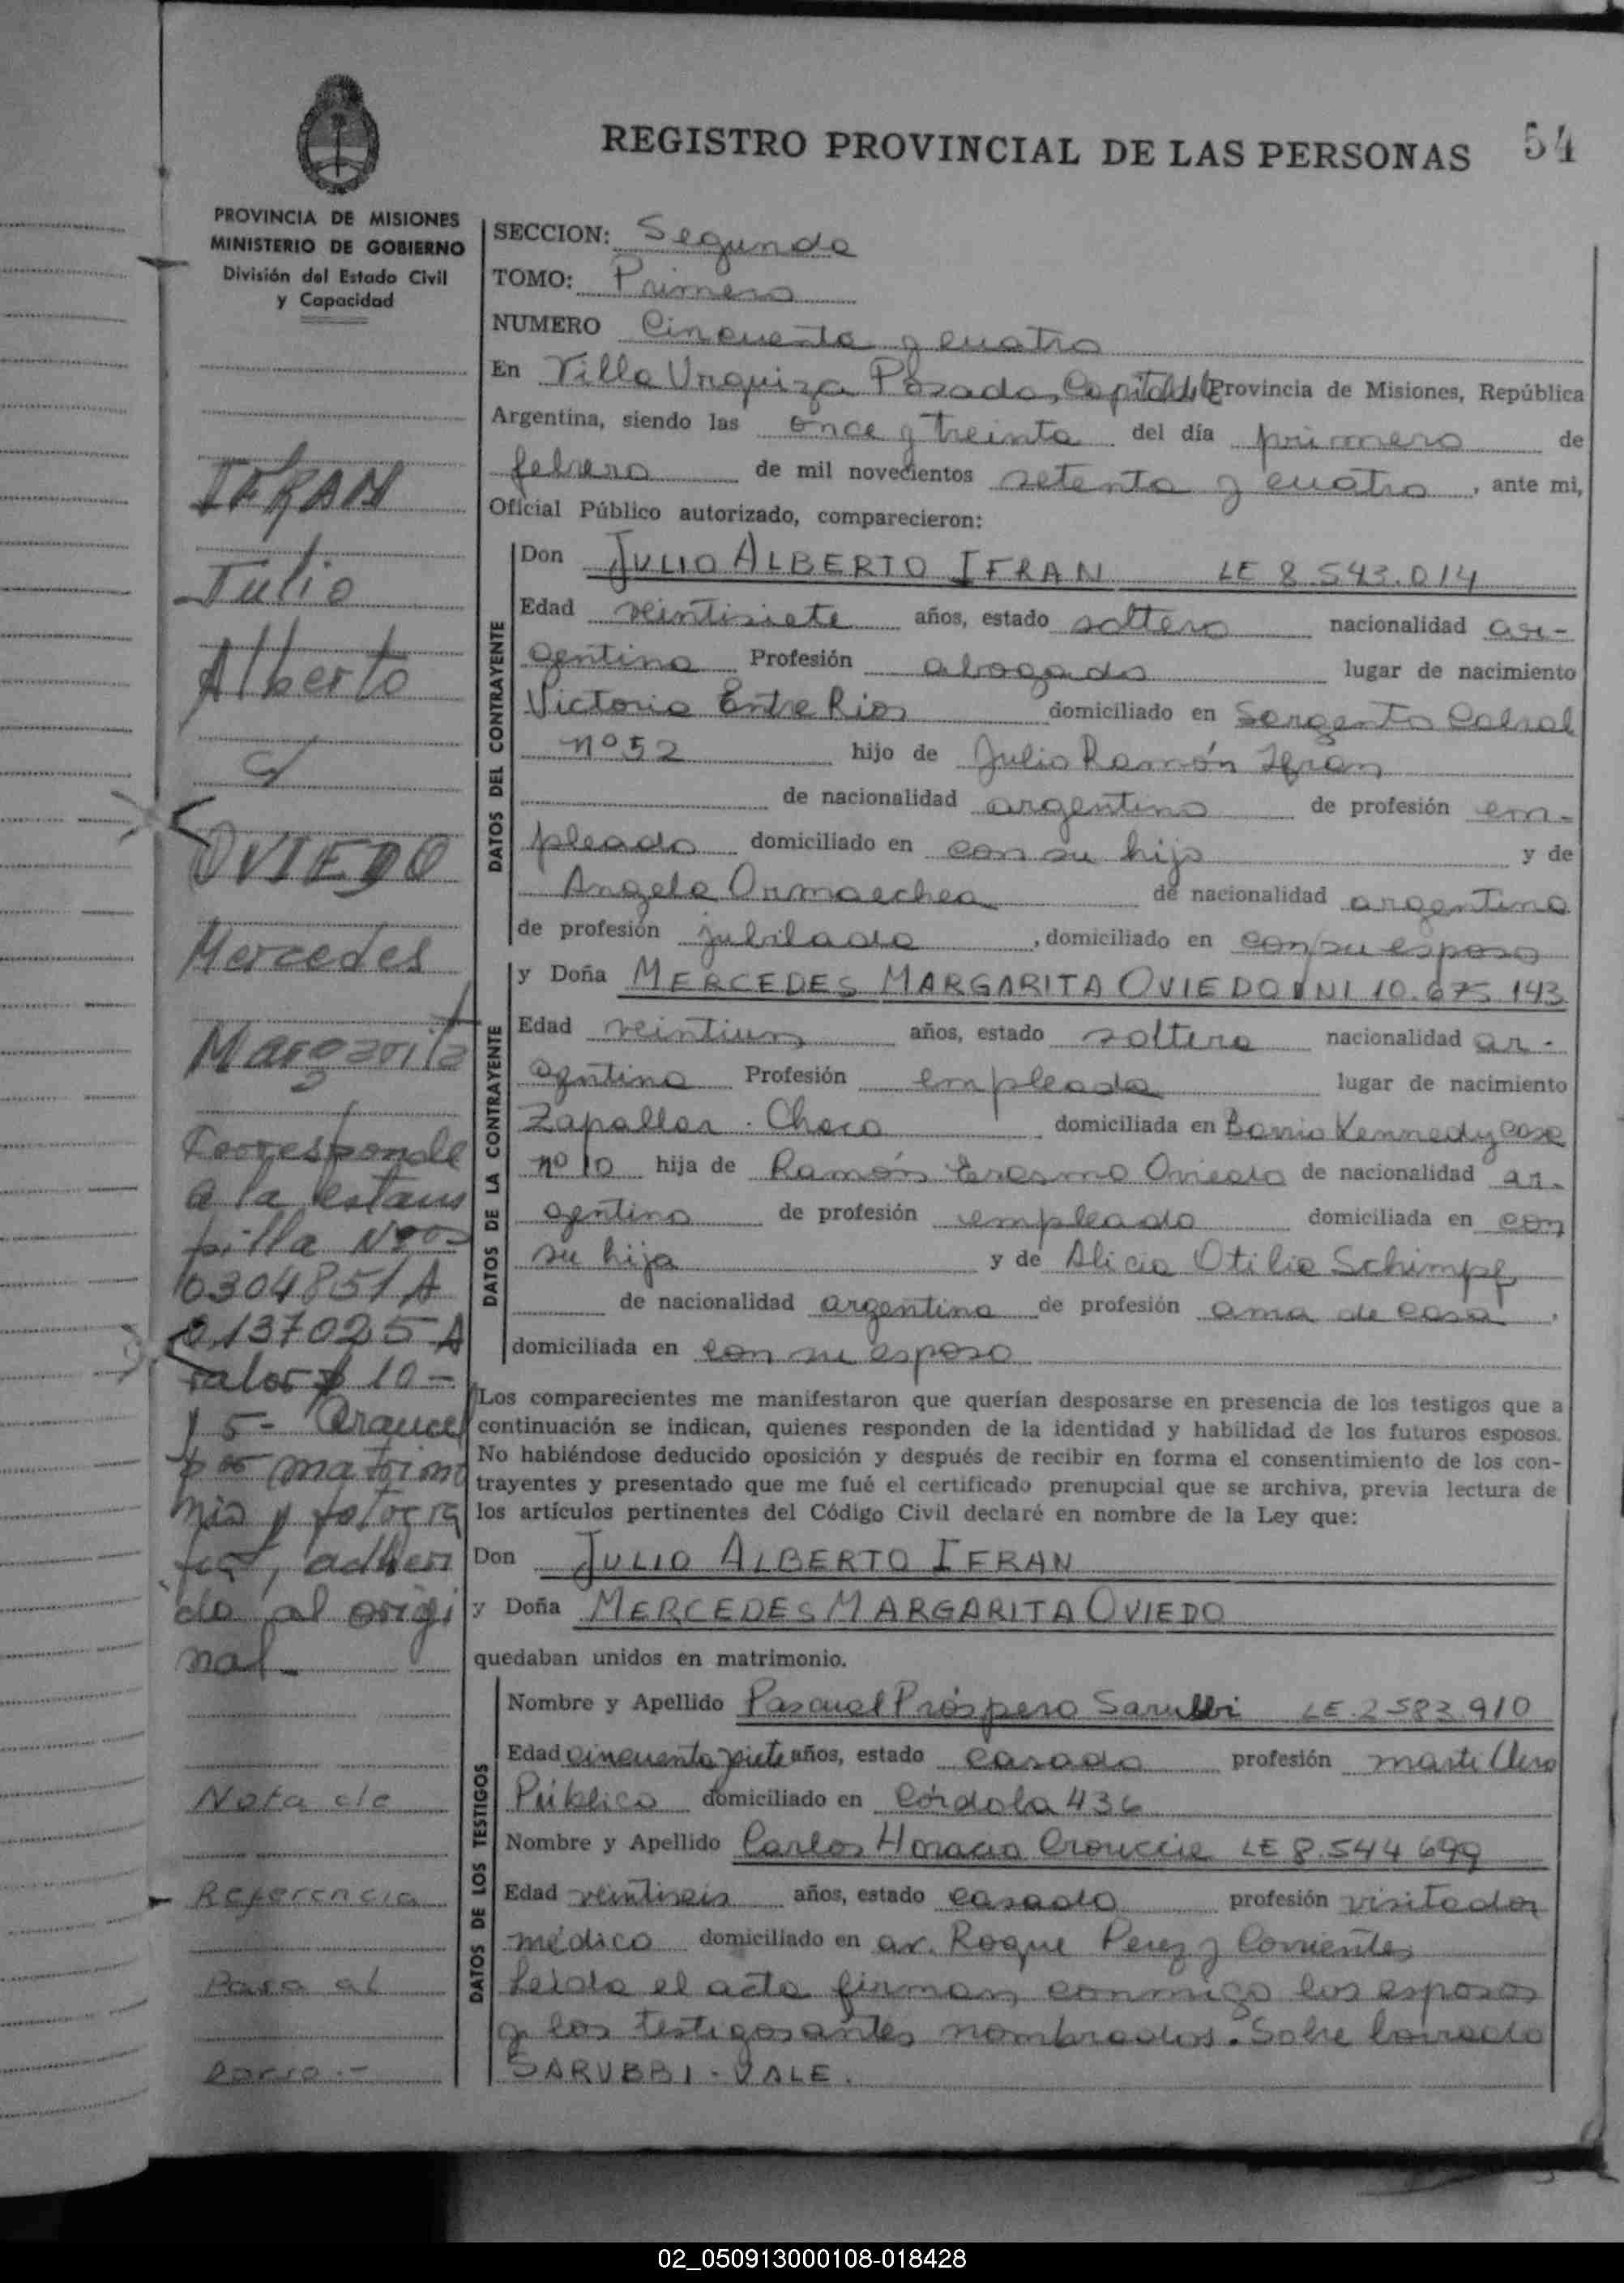 REGISTRO PROVINCIAL DE LAS PERSONAS 54
PROVINCIA DE MISIONES
MINISTERIO DE GOBIERNO
División del Estado Civil
y Capacidad
IFRAN
Julio
Alberto
c/
OVIEDO
Mercedes
Margarita
Corresponde
a la estam
pilla Nros
0304851 A
0137025 A
valor $ 10 -
y 5 - Arancel
por matrimo
nio y fotogra
fia, adheri
do al origi
nal -
Nota de
Referencia
Pasa al
dorso.-
SECCION: Segunda
TOMO: Primero
NUMERO Cincuenta y cuatro
En Villa Urquiza Posadas, Capital de la Provincia de Misiones, República
Argentina, siendo las once y treinta del día primero de
febrero de mil novecientos setenta y cuatro, ante mi,
Oficial Público autorizado, comparecieron:
DATOS DEL CONTRAYENTE
Don JULIO ALBERTO IFRAN LE 8.543.014
Edad veintisiete años, estado soltero nacionalidad ar-
gentina Profesión abogado lugar de nacimiento
Victoria Entre Rios domiciliado en Sargento Cabral
nº 52 hijo de Julio Ramón Ifran
de nacionalidad argentina de profesión em-
pleado domiciliado en con su hijo y de
Angela Ormaechea de nacionalidad argentina
de profesión jubilada, domiciliado en con su esposo
DATOS DE LA CONTRAYENTE
y Doña MERCEDES MARGARITA OVIEDO DNI 10.675.143
Edad veintiun años, estado soltera nacionalidad ar-
gentina Profesión empleada lugar de nacimiento
Zapallar - Chaco domiciliada en Barrio Kennedy casa
nº 10 hija de Ramón Erasmo Oviedo de nacionalidad ar-
gentino de profesión empleado domiciliada en con
su hija y de Alicia Otilia Schimpf
de nacionalidad argentina de profesión ama de casa,
domiciliada en con su esposo
Los comparecientes me manifestaron que querían desposarse en presencia de los testigos que a
continuación se indican, quienes responden de la identidad y habilidad de los futuros esposos.
No habiéndose deducido oposición y después de recibir en forma el consentimiento de los con-
trayentes y presentado que me fué el certificado prenupcial que se archiva, previa lectura de
los artículos pertinentes del Código Civil declaré en nombre de la Ley que:
Don JULIO ALBERTO IFRAN
y Doña MERCEDES MARGARITA OVIEDO
quedaban unidos en matrimonio.
DATOS DE LOS TESTIGOS
Nombre y Apellido Pascual Próspero Sarubbi LE.2583.910
Edad cincuenta y siete años, estado casado profesión martillero
Público domiciliado en Córdoba 436
Nombre y Apellido Carlos Horacio LE 8.544 699
Edad veintiseis años, estado casado profesión visitador
médico domiciliado en av. Roque Perez y Corrientes
Leida el acta firman conmigo los esposos
y los testigos antes nombrados. Sobre borrado
SARUBBI - VALE.
02_050913000108-018428